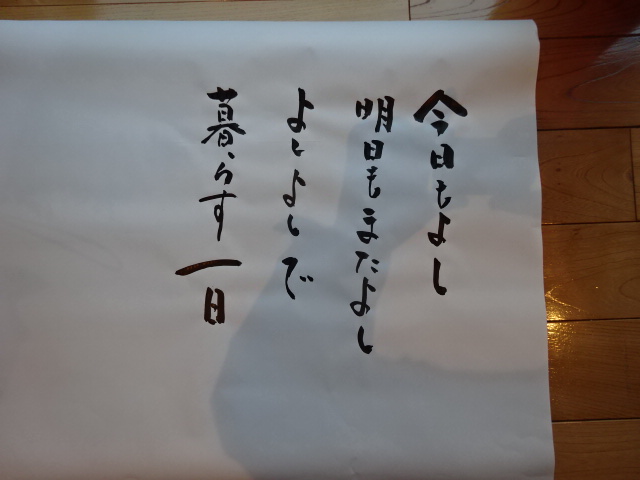 今日もよし
明日もまたよし
よしよしで
暮らす一日